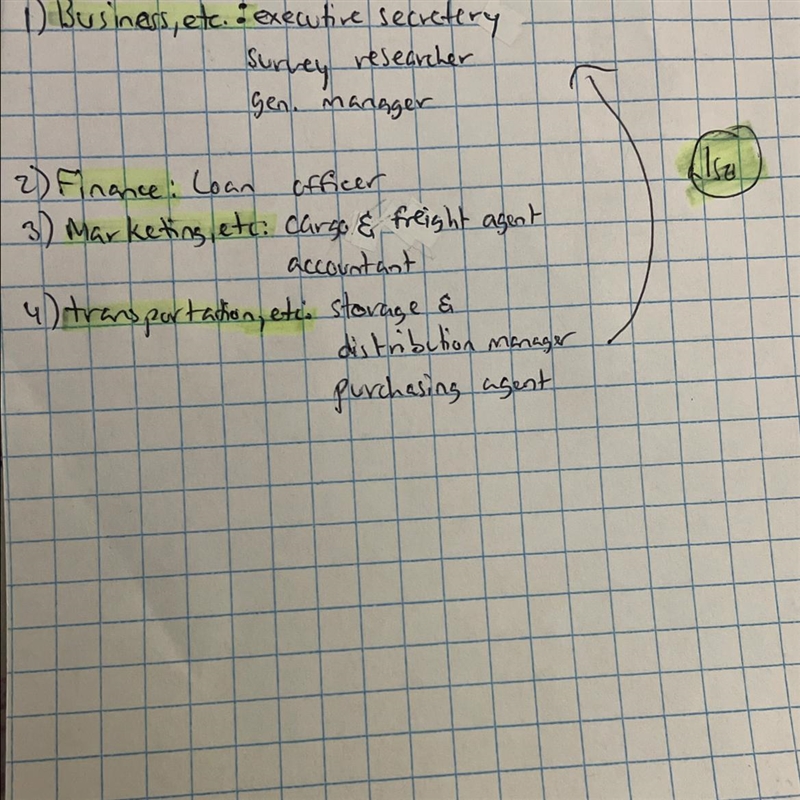 1) Business, etc. : executive secretery
survey researcher
gen. manager
2) Finance: Loan officer
3) Marketing, etc: cargo & freight agent
accountant
4) transportation, etc: storage &
distribution manager
purchasing agent